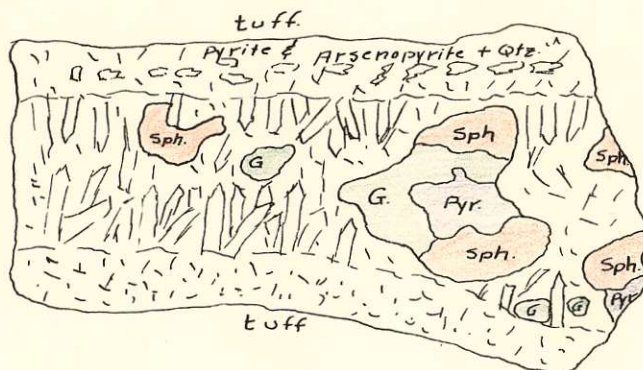 tuff.
Pyrite & Arsenopyrite + Qtz.
Sph.
Sph
Sph
G
G.
Pyr.
Sph.
Sph.
G
G
Pyr
tuff